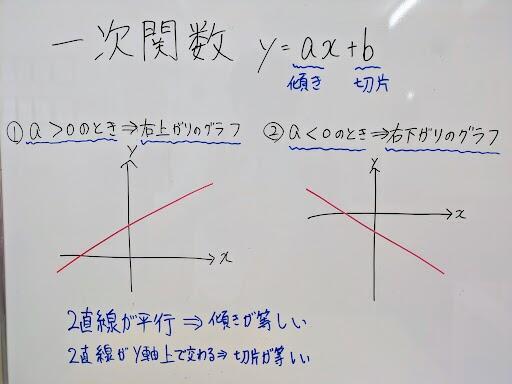 一次関数 y=ax+b
傾き 切片
①a>0のとき⇒右上がりのグラフ
②a<0のとき⇒右下がりのグラフ
y
x
y
x
2直線が平行⇒傾きが等しい
2直線がY軸上で交わる⇒切片が等しい